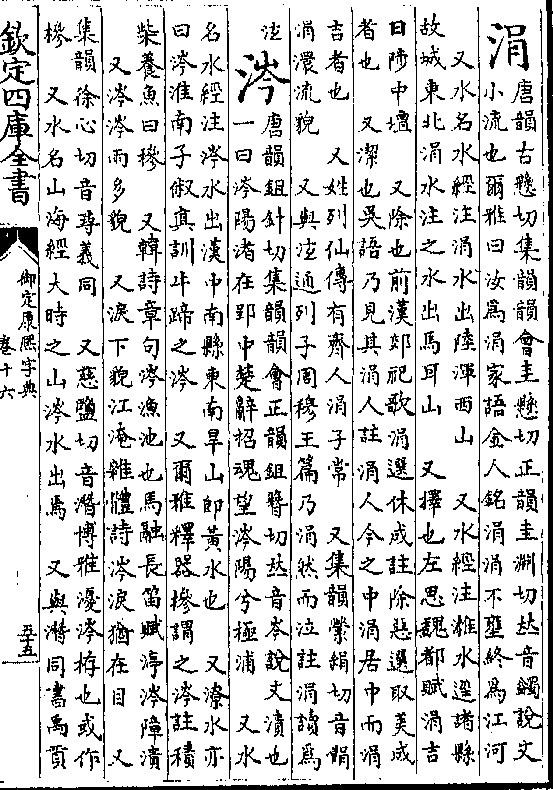 涓唐韻古懸切集韻韻會圭懸切正韻圭淵切𠀤音蠲說文
小流也爾雅曰汝爲涓家語金人銘涓涓不壅終爲江河
又水名水經注涓水出陸渾西山　又水經注濰水逕諸縣
故城東北涓水注之水出馬耳山　又擇也左思魏都賦涓吉
日陟中壇　又除也前漢郊祀歌涓選休成註除惡選取美成
者也　又潔也吳語乃見其涓人註涓人今之中涓居中而涓
吉者也　又姓列仙傳有齊人涓子常　又集韻縈絹切音
涓澴流貌　又與泫通列子周穆王篇乃涓然而泣註涓讀爲
泫
涔唐韻鉏針切集韻韻會正韻鉏簪切𠀤音岑說文漬也
一曰涔陽渚在郢中楚辭招魂望涔陽兮極浦　又水
名水經注涔水出漢中南縣東南旱山卽黃水也　又潦水亦
曰涔淮南子俶眞訓牛蹄之涔　又爾雅釋器槮謂之涔註積
柴養魚曰槮　又韓詩章句涔漁池也馬融長笛賦渟涔障潰
又涔涔雨多貌　又淚下貌江淹雜體詩涔淚猶在目　又
集韻徐心切音尋義同　又慈鹽切音潛博雅瀀涔栫也或作
槮　又水名山海經大時之山涔水出焉　又與灊同書禹貢
欽定四庫全書
御定康熙字典
卷十六
五十五